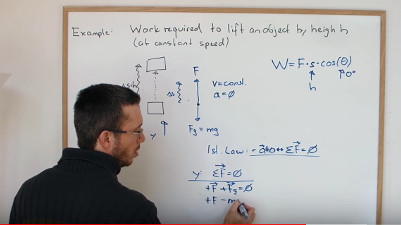 Example: Work required to lift an object by height h
(at constant speed)
W = F·s·cos(θ)
0°
h
F
v = const.
a = ∅
F₉ = mg
y
1st. Law:
ΣF = ∅
y: ΣF = ∅
+F + F₉ = ∅
+F - m